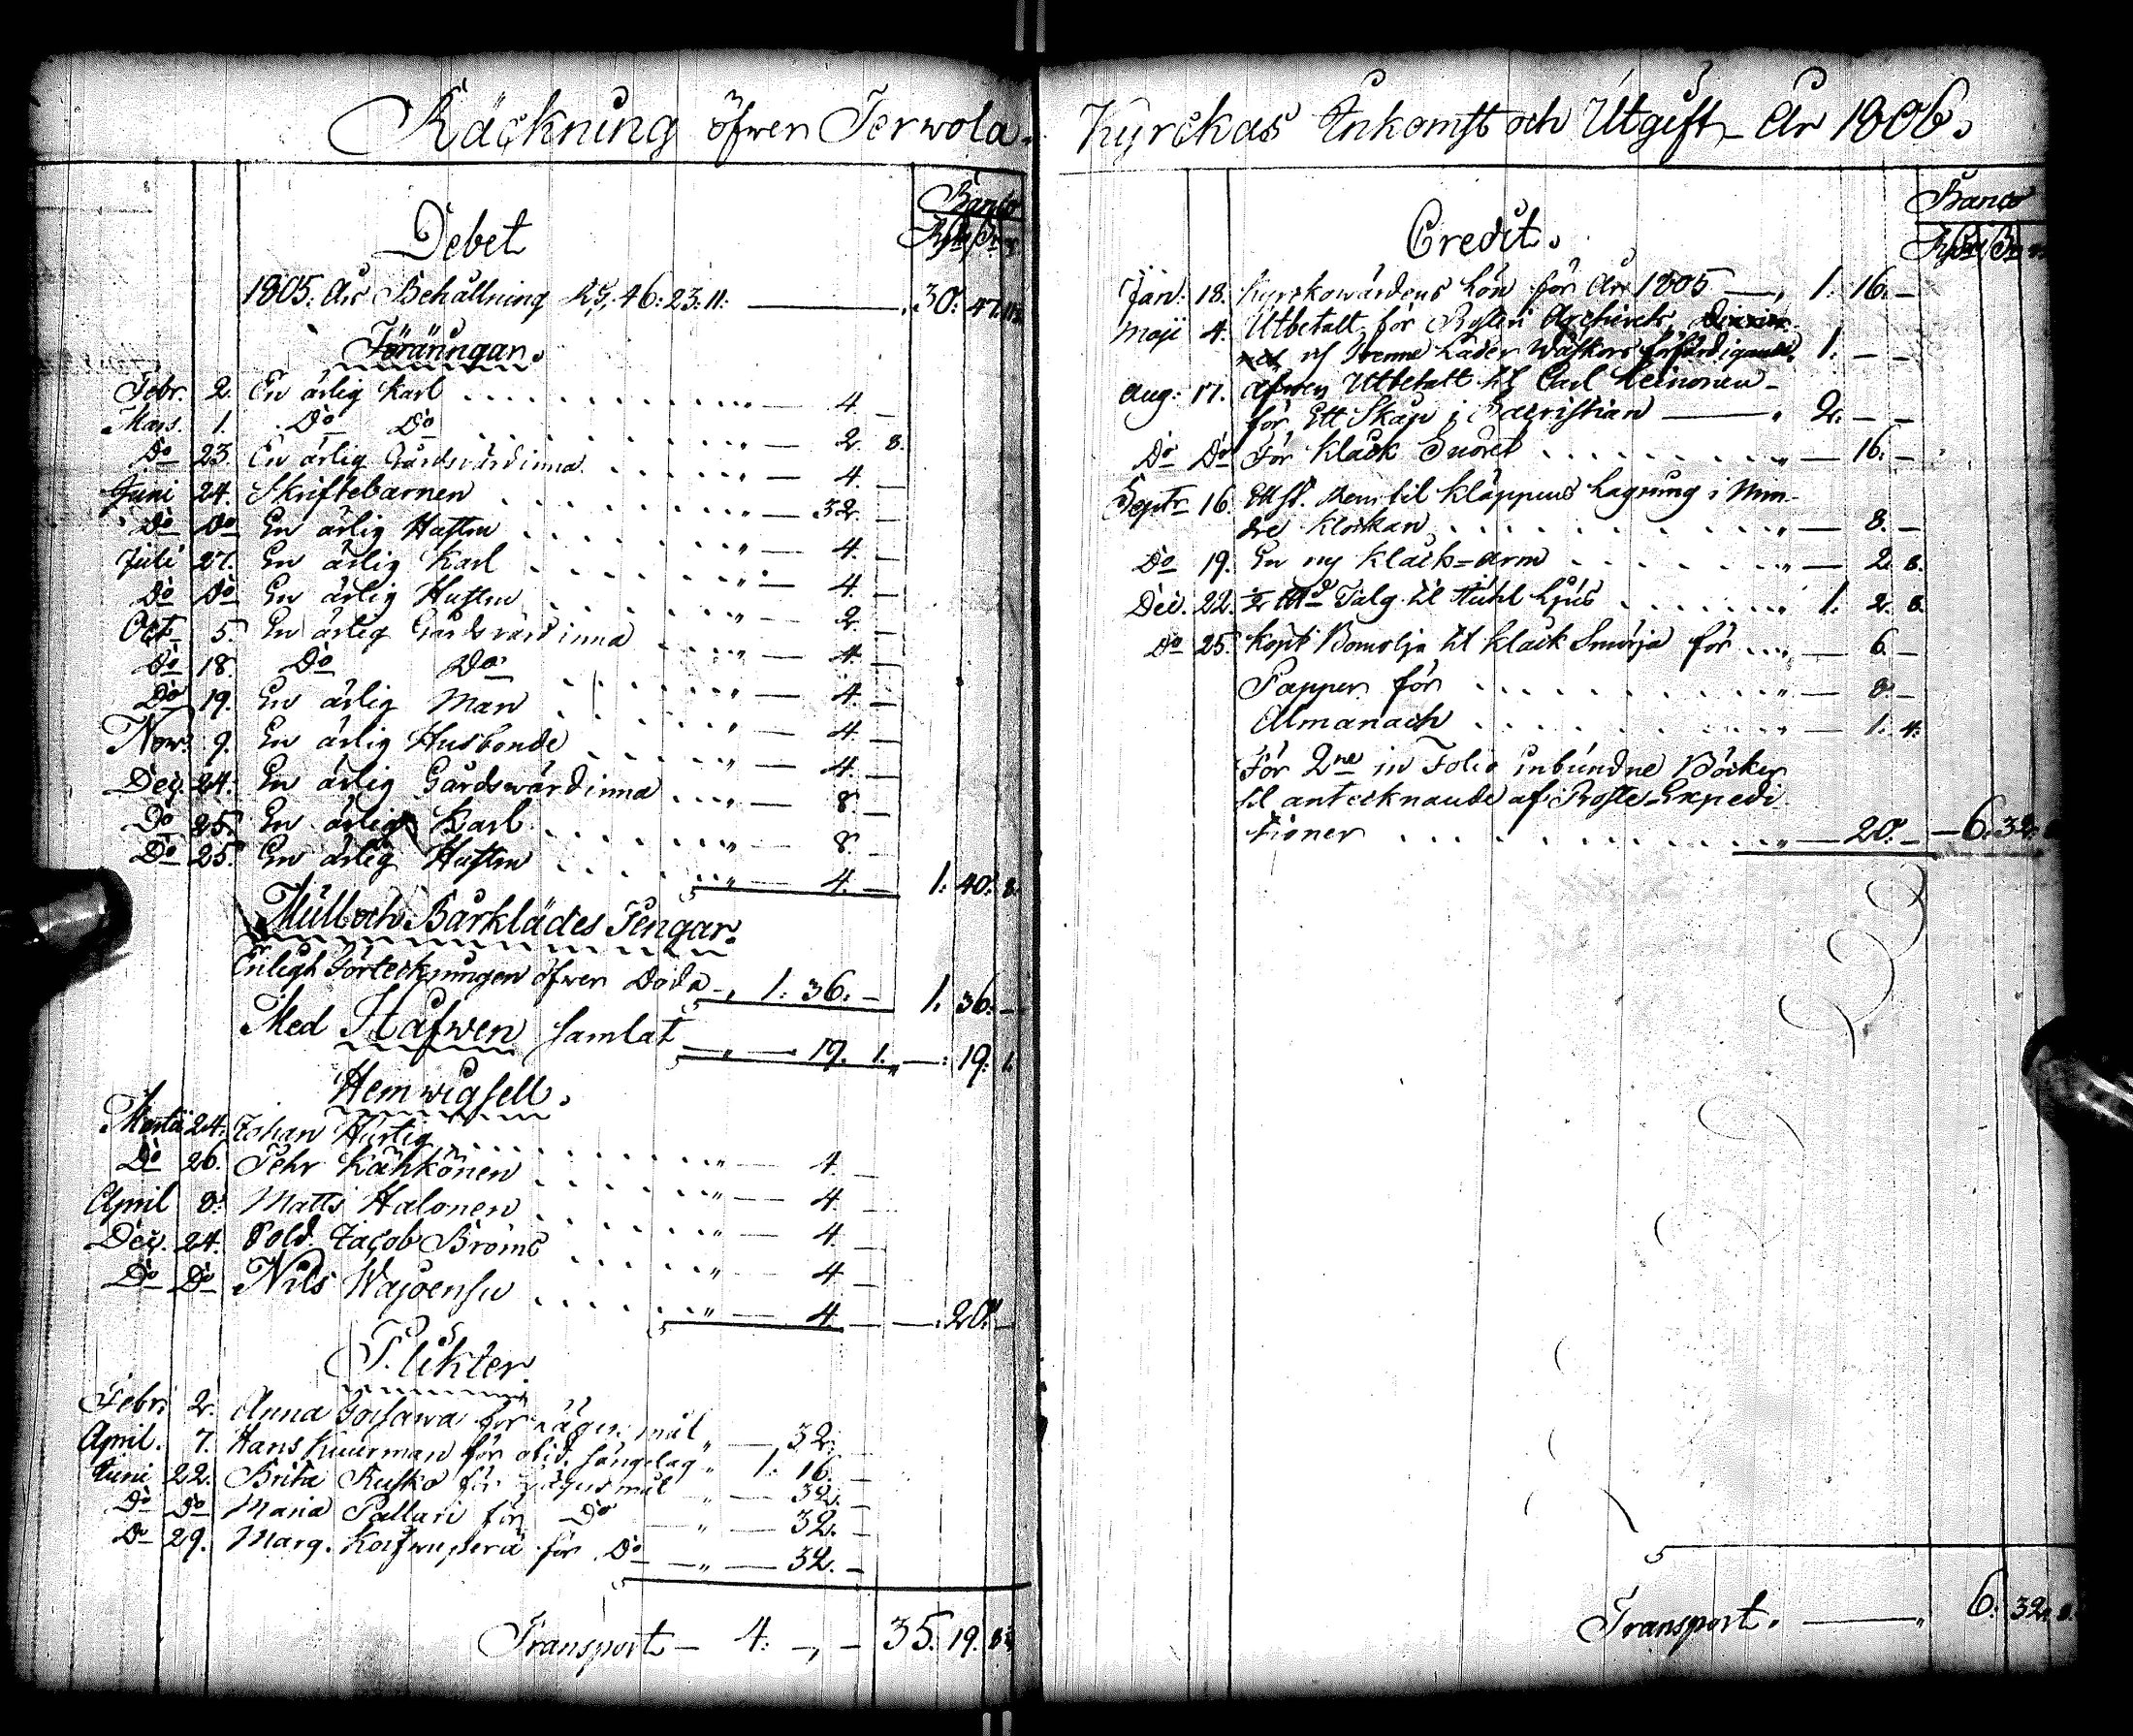 Räckning öfwer Terwola
Debet
Banco
1805. Års Behållning Rg. 46: 23: 11: 30: 47. 11
Föräringar.
Febr. 2. En ärlig Karl 4. —
Mars. 1. Do Do 2. 8.
Do 23. En ärlig Gårdswärdinna 4. —
Juni 24. Skriftebarnen 32 —
Do Do En ärlig Hustru 4. —
Juli 27. En ärlig Karl 4. —
Do Do En ärlig Hustru 2. —
Oct. 5. En ärlig Gårdswärdinna 4. —
Do 18. Do Do 4. —
Do 19. En ärlig Man 4. —
Now. 9. En ärlig Husbonde 4. —
Dec. 24. En ärlig Gårdswärdinna 8. —
Do 25. En ärlig Karl 8. —
Do 25. En ärlig Hustru 4. — 1: 40: 8.
Mull och Bårklädes Pengar.
Enligt Förteckningen öfwer Döda 1: 36. — 1. 36. —
Med Håfwen samlat 19. 1. — 19: 1.
Hemwigsell.
Martii 24. Johan Hurtig 4. —
Do 26. Pehr Kähkönen 4. —
April 8. Matts Halonen 4. —
Dec. 24. Sold. Jacob Broms 4. —
Do Do Nils 4. — 20. —
Plikter.
Febr. 2. Anna för lägersmål 32. —
April. 7. Hans Kuurman för otid. sängelag 1. 16. —
Juni 22. Brita Rusko för lägersmål 32. —
Do Do Maria Pallari för Do 32. —
Do 29. Marg. för Do 32. —
Transport — 4: —, — 35. 19.
Kyrckas Inkomst och Utgift År 1806.
Credit.
Banco
Jan: 18. Kyrckowärdens Lön för År 1805 — 1. 16. —
Maji 4. Utbetalt för
af trenne Läder Wäskors förfärdigande. 1. — —
Aug: 17. Äfwen Utbetalt til Carl Heinonen
för Ett Skåp i Sacristian 2. — —
Do Do För Klåck Snöret 16. —
Septr. 16. Ett st. Rem til Kläppens Lagning i Min-
dre Klockan 8. —
Do 19. En ny Klåck-arm 2. 8.
Dec. 22. ½ Talg til Ljus 1. 2. 8.
Do 25. Köpt Bomolja til Klåck Smörja för 6 —
Papper för 8. —
Almanach 1. 4.
För 2ne in Folio inbundne Böcker
til antecknande af Expedi-
tioner 20. — 6. 32.
Transport. 6. 32. 8.